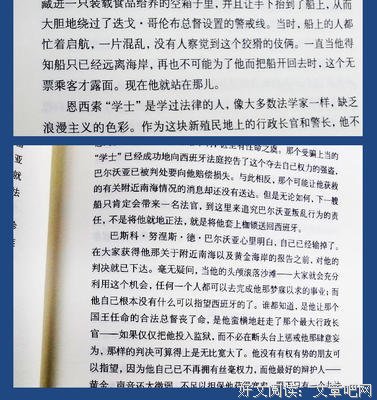 藏进一只装载食品给养的空箱子里，并且让手下抬到了船上，从而
大胆地绕过了迭戈·哥伦布总督设置的警戒线。当时，船上的人都
忙着启航，一片混乱，没有人察觉到这个狡猾的伎俩。一直当他得
知船只已经远离海岸，再也不可能为了他而把船开回去时，这个无
票乘客才露面。现在他就站在那儿。
恩西索“学士”是学过法律的人，像大多数法学家一样，缺乏
浪漫主义的色彩。作为这块新殖民地上的行政长官和警长，他不
性命之虞。那个受骗上当的
“学士”已经成功地向西班牙法庭控告了这个夺去自己权力的强盗，
巴尔沃亚已被判处要向他赔偿损失。与此相反，那个可能让他获救
的有关附近南海情况的消息却还没有送达。但是无论如何，下一艘
船只肯定会带来一名法官，到这里来追究巴尔沃亚叛乱行为的责
任，不是将他就地正法，就是将他套上枷锁送回西班牙。
巴斯科·努涅斯·德·巴尔沃亚心里明白，自己已经输掉了。
在大家获得他那关于附近南海以及黄金海岸的报告之前，对他的
判决就已下达。毫无疑问，当他的头颅滚落沙滩——大家就会充分
利用这个机会，任何一个人都可以去完成他那梦寐以求的事业；而
他自己根本没有什么可以指望西班牙的了。谁都知道，是他让那个
国王任命的合法总督丧了命，是他蛮横地赶走了那个最大行政长
官——如果仅仅把他投入监狱，而不必在断头台上惩戒他那肆意妄
为，那样的判决可算得上是无比宽大了。他没有有权有势的朋友可
以指望，因为他自己已不再拥有丝毫权力，而他最好的辩护人——
黄金，声音还太微弱，不足以担保他
好文阅读：文章吧网